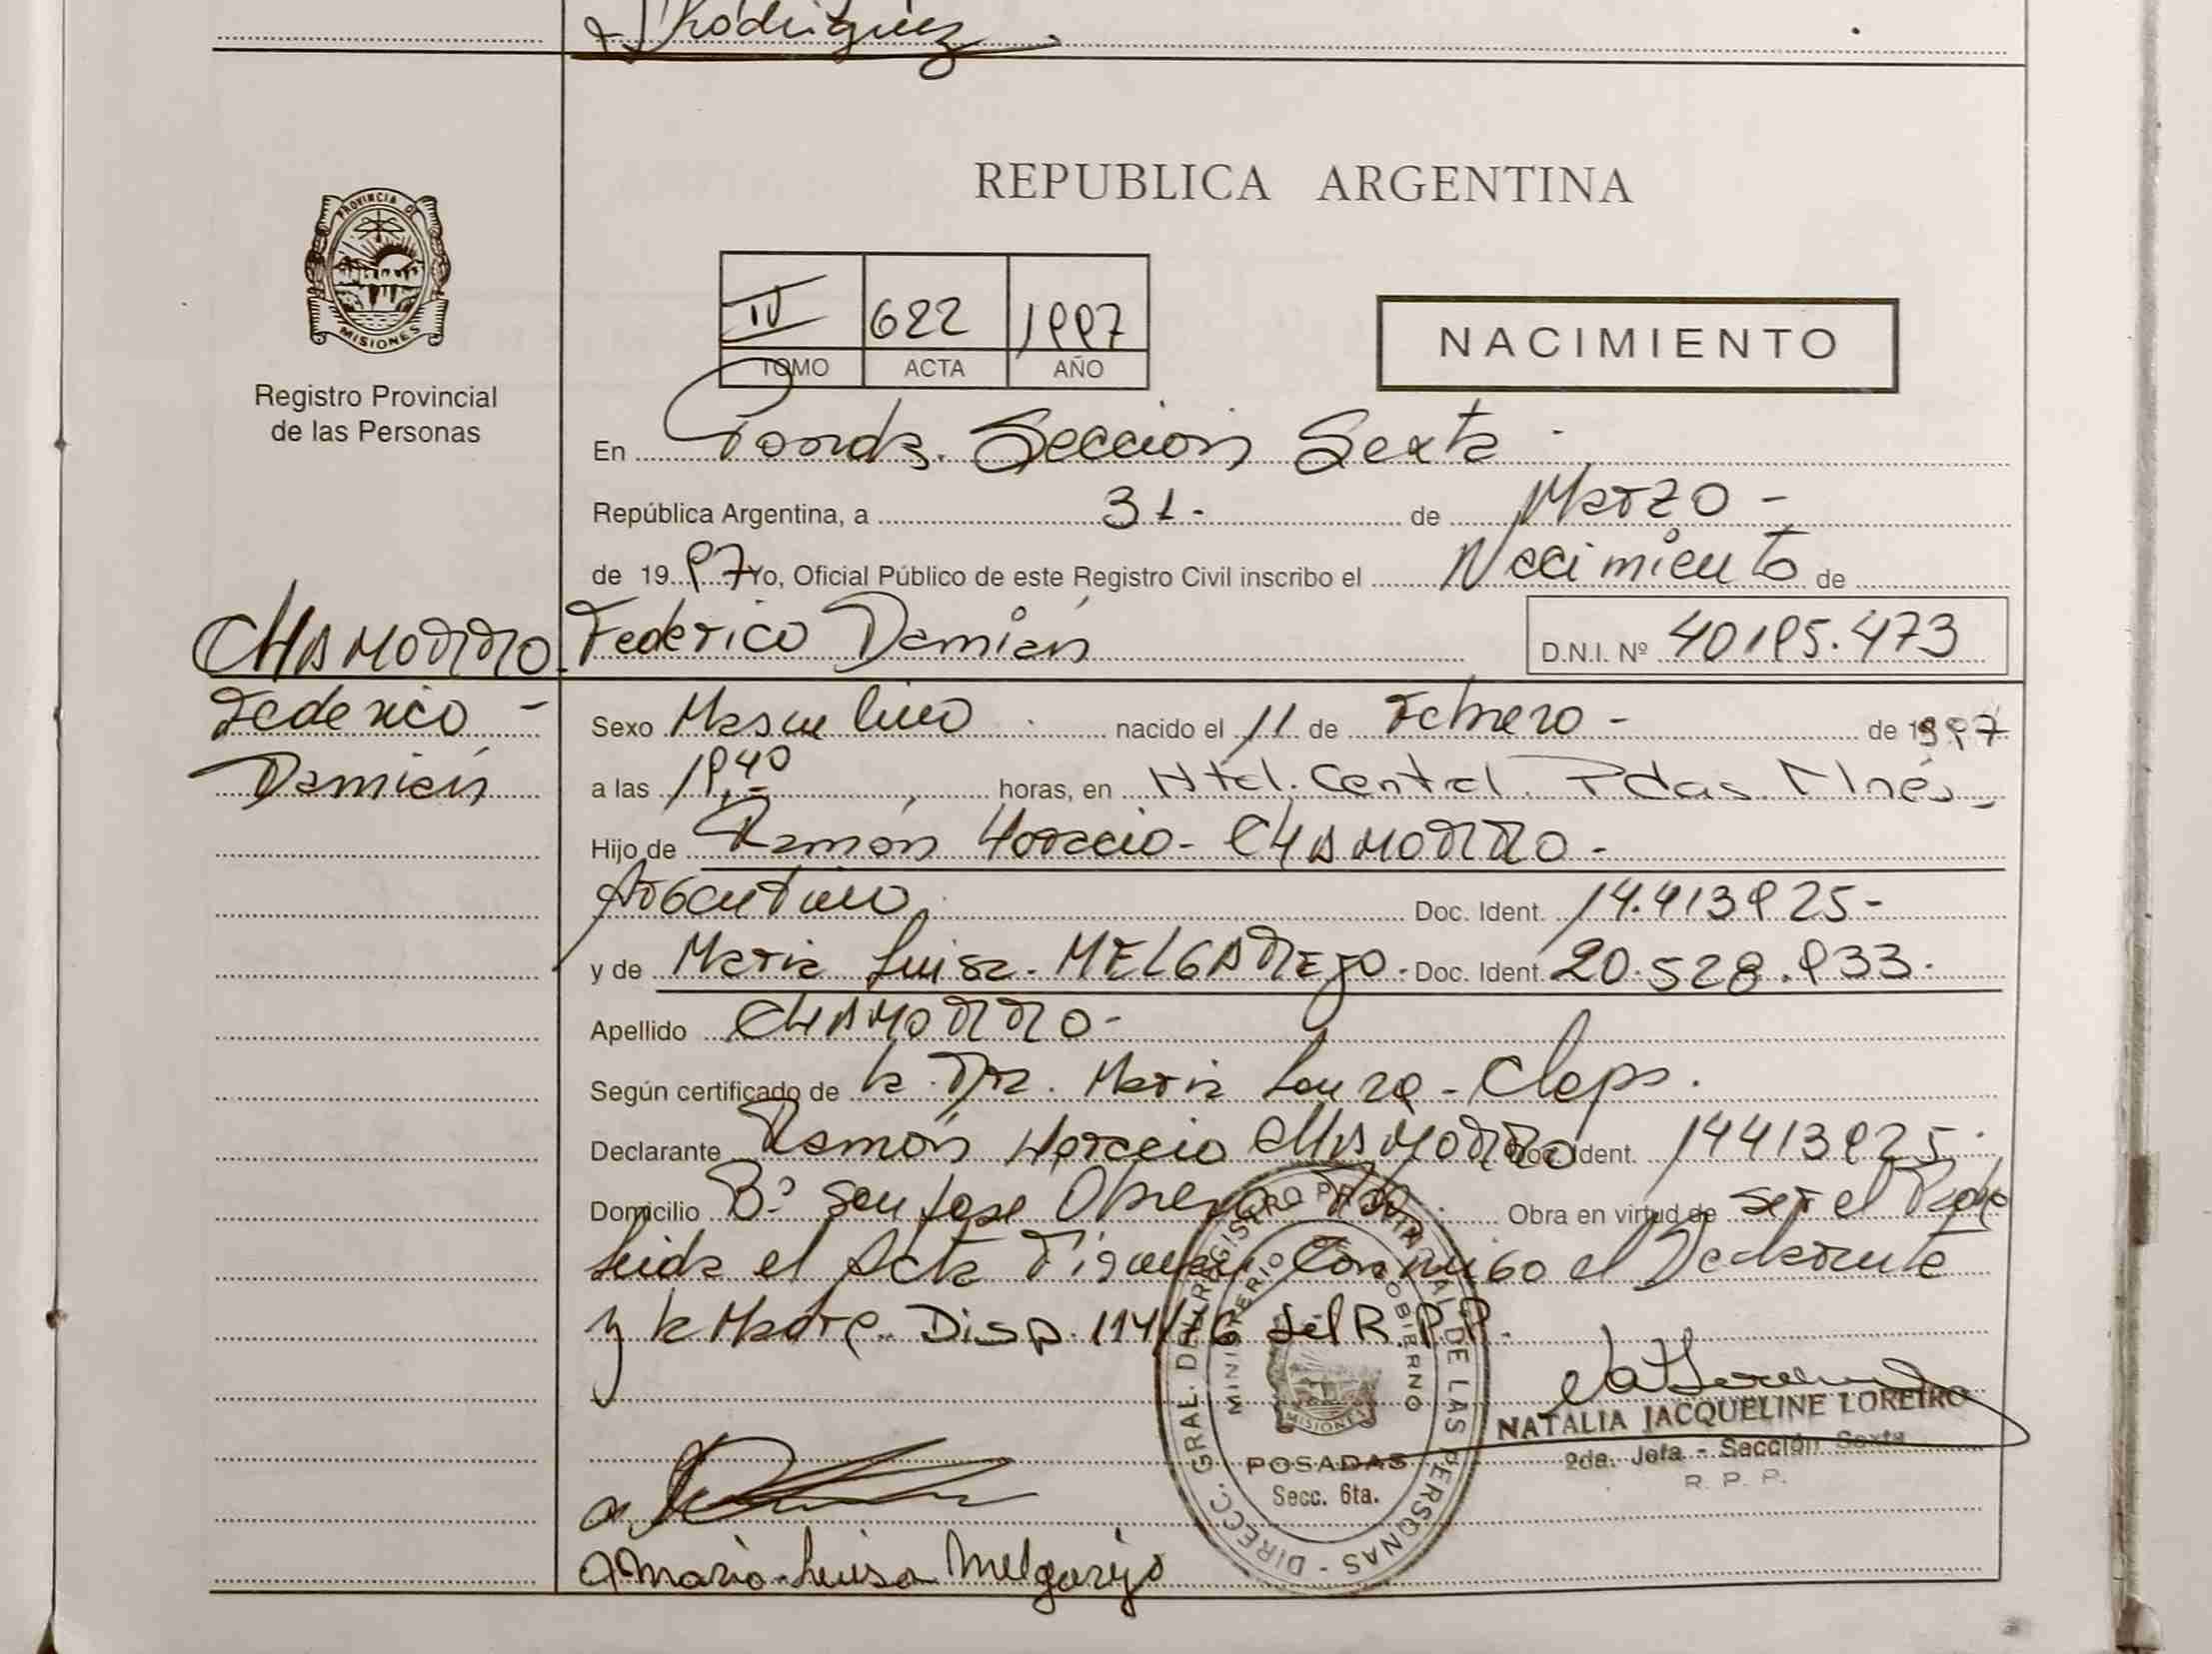 Rodriguez
PROVINCIA DE
MISIONES
Registro Provincial
de las Personas
REPUBLICA ARGENTINA
IV 622 1997
TOMO ACTA AÑO
NACIMIENTO
En Posadas. Sección Sexta -
República Argentina, a 31 - de Marzo -
de 1997 Yo, Oficial Público de este Registro Civil inscribo el Nacimiento de
CHAMORRO. Federico Damián D.N.I. Nº 40195.473
Federico -
Damián
Sexo Masculino nacido el 11 de Febrero - de 1997
a las 19,40 horas, en Htal. Central. Pdas. Mnes -
Hijo de Ramón Horacio - CHAMORRO -
Argentino Doc. Ident. 14.413925 -
y de Maria Luisa - MELGAREJO - Doc. Ident. 20.528.933 -
Apellido CHAMORRO -
Según certificado de la Dra. Maria Laura - Cleps.
Declarante Ramón Horacio CHAMORRO Doc. Ident. 14413925 -
Domicilio Bº San Jose Obrero Obra en virtud de ser el Padre
Leida el Acta Firman Conmigo el Declarante
y la Madre. Disp. 114/76 del R.P.P.
NATALIA JACQUELINE LOREIRO
2da. Jefa - Sección Sexta
R. P. P.
DIRECC. GRAL. DEL REGISTRO PROVINCIAL DE LAS PERSONAS -
MINISTERIO DE GOBIERNO
MISIONES
POSADAS
Secc. 6ta.
Maria Luisa Melgarejo